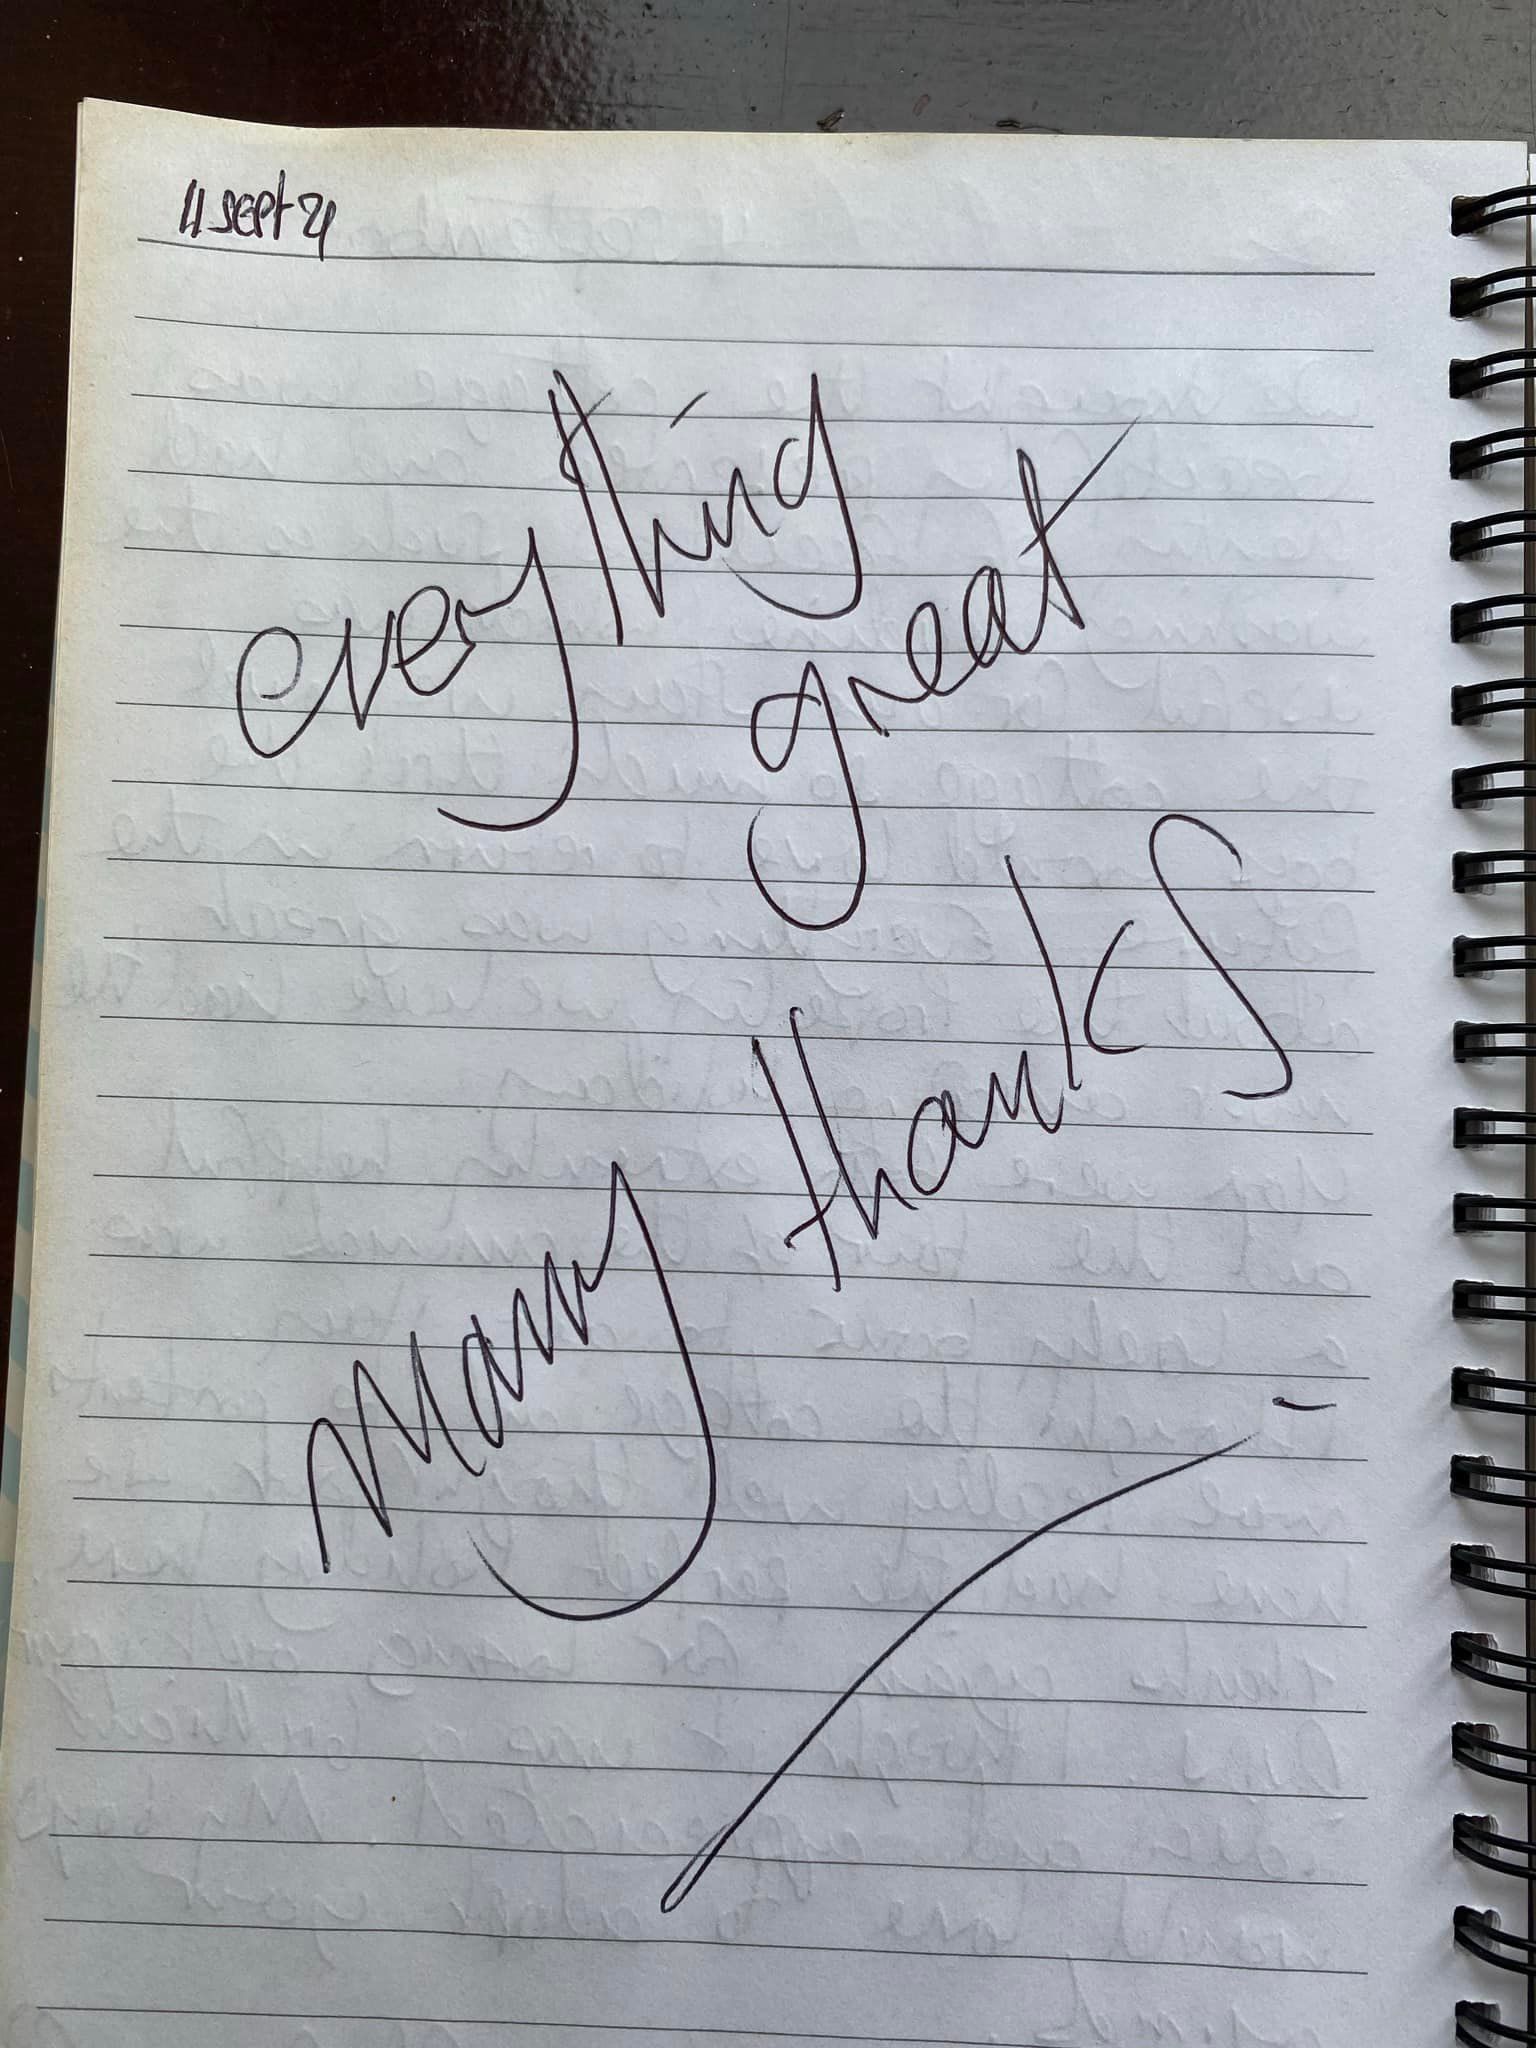 11 SEPT 21
everything
great
Many thanks